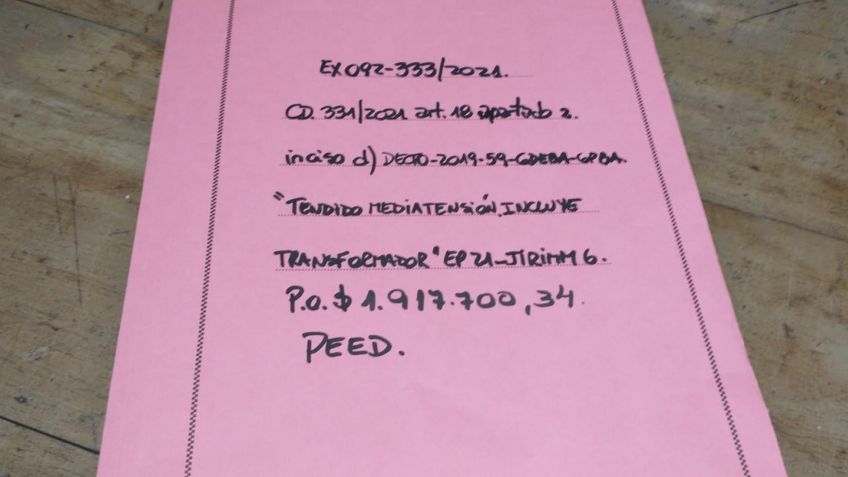 EX 092-333/2021.
CD. 331/2021 art. 18 apartado 2.
inciso d) DECTO-2019-59-GDEBA-GPBA.
"TENDIDO MEDIA TENSIÓN, INCLUYE
TRANSFORMADOR" EP 21-
P.O. $ 1.917.700,34.
PEED.